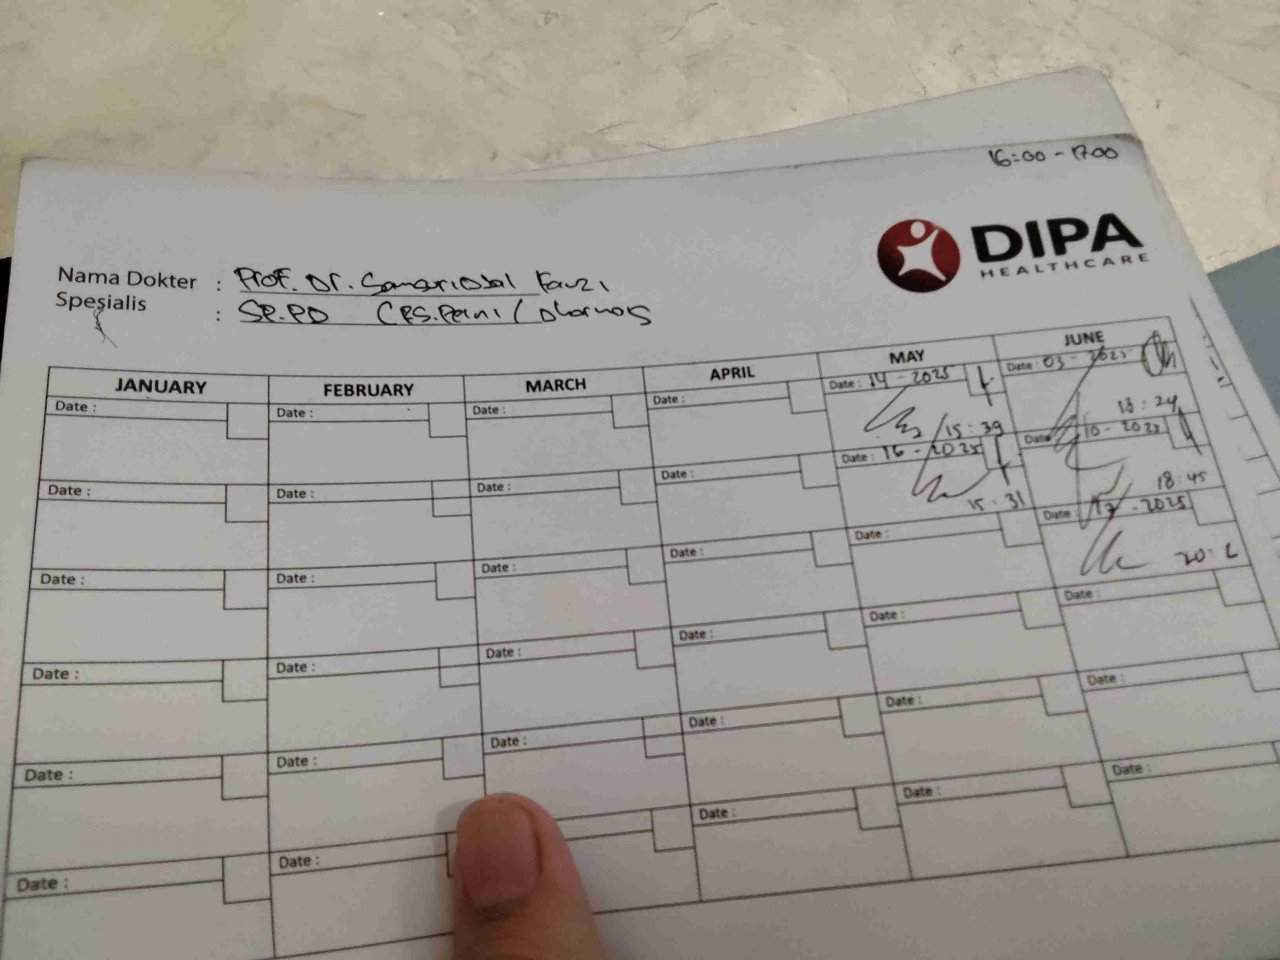 16:00 - 17.00
DIPA
HEALTHCARE
Nama Dokter : Prof. Dr.
Spesialis : SP.PD
JANUARY FEBRUARY MARCH APRIL MAY JUNE
Date : Date : Date : Date : Date : 14 - 2025 Date : 03 - 2025
15:39 18:24
Date : Date : Date : Date : Date : 16 - 2025 Date : 10 - 2025
15:31 18:45
Date : Date : Date : Date : Date : Date : 17 - 2025
Date : Date : Date : Date : Date : Date :
Date : Date : Date : Date : Date : Date :
Date : Date : Date : Date : Date :